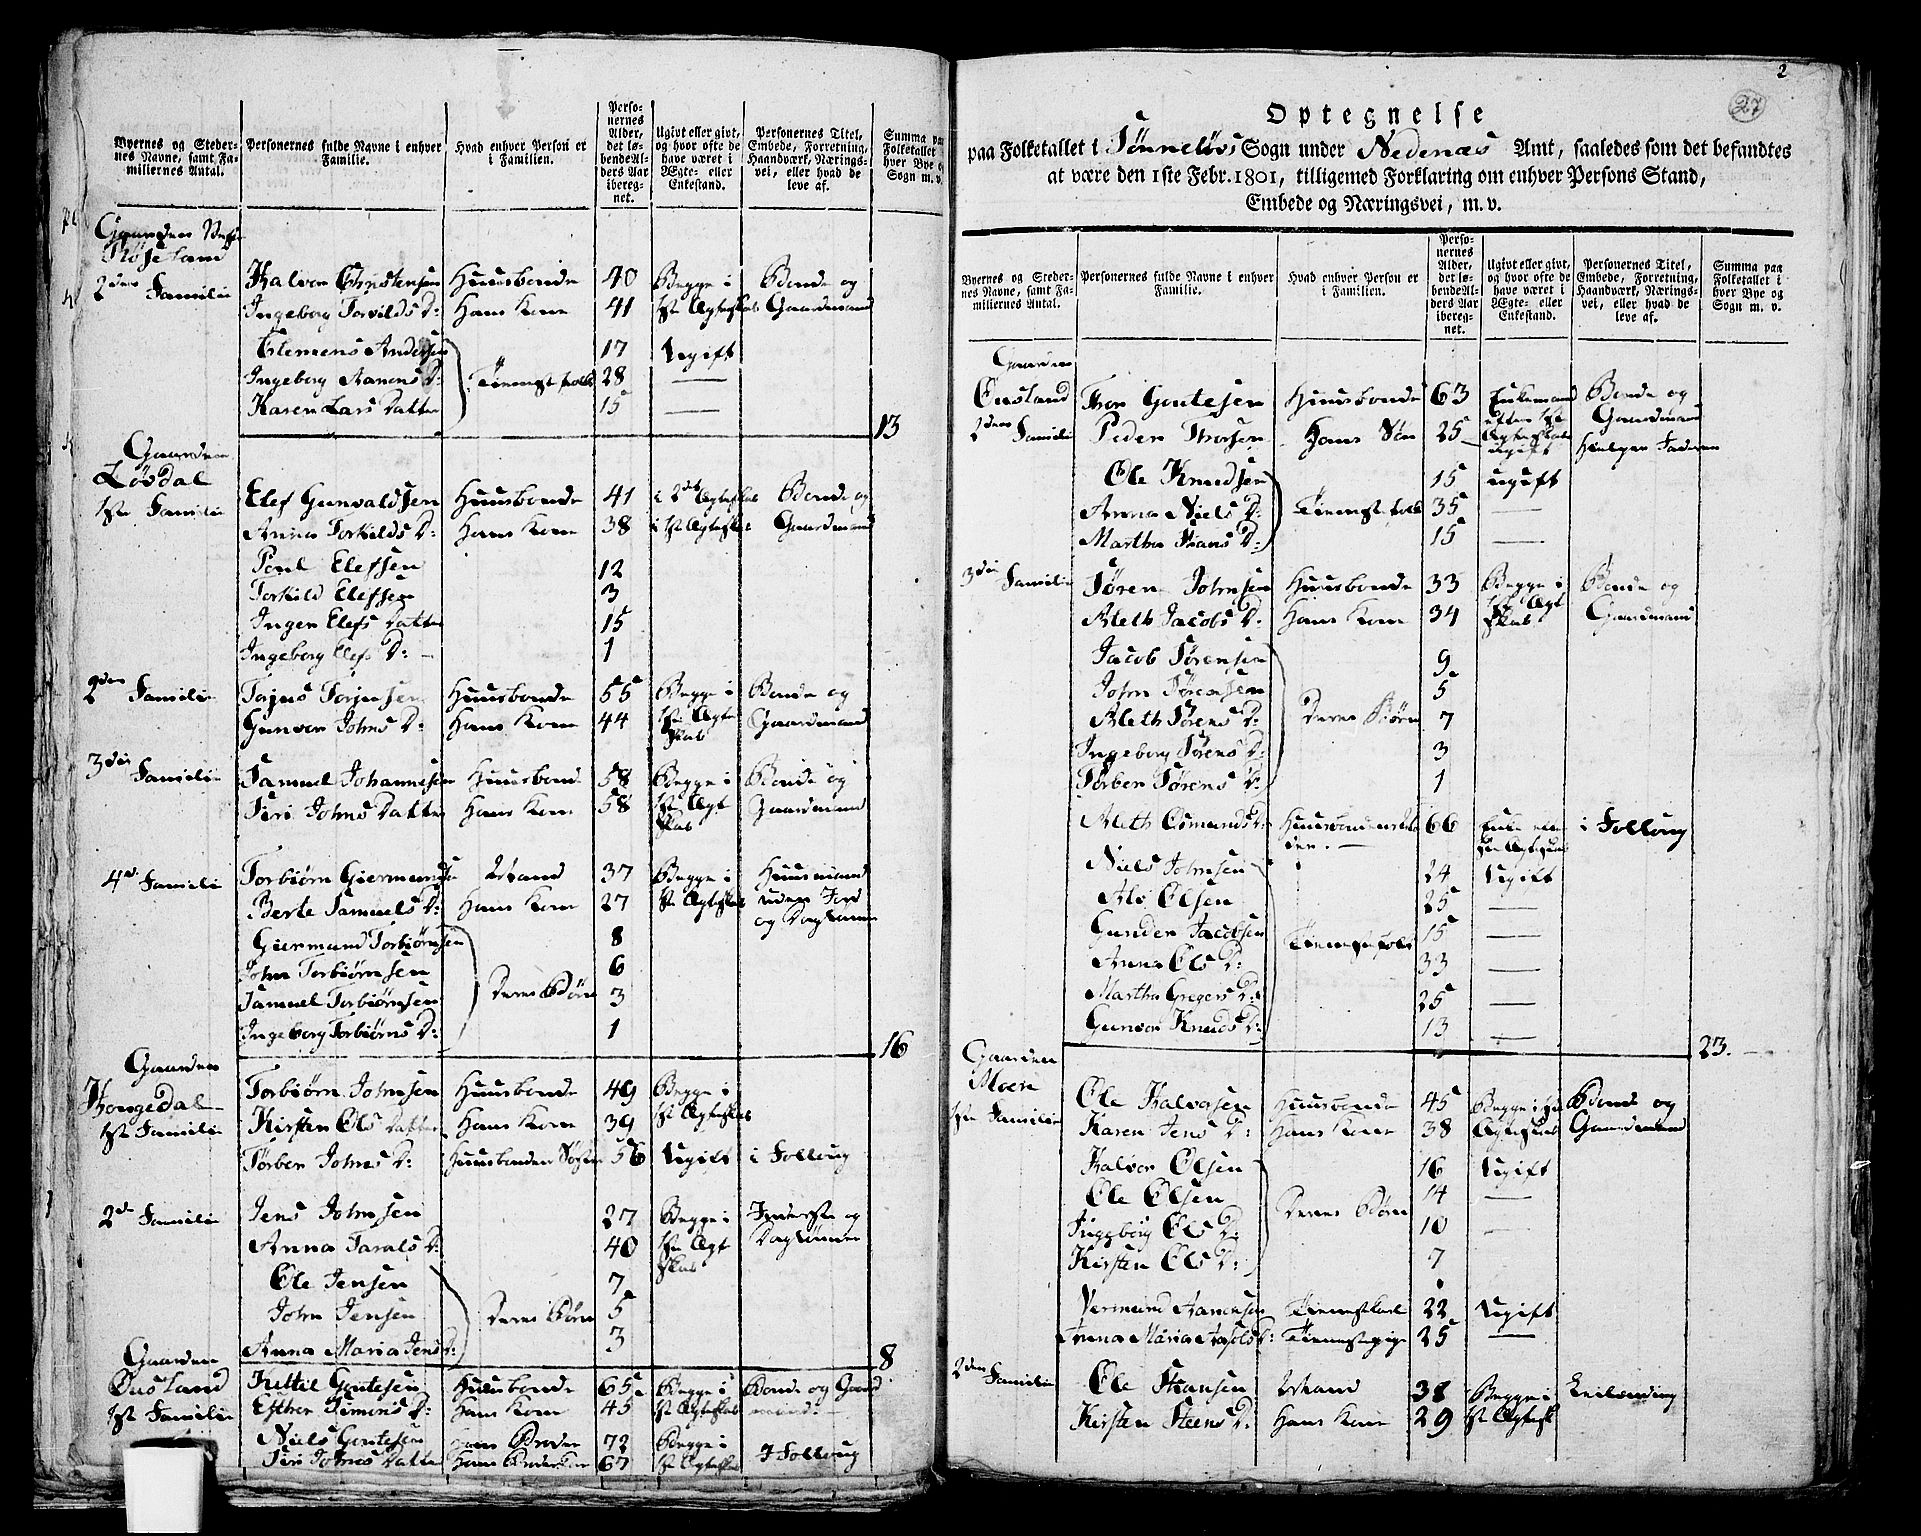 Byernes og Steder-
nes Navne, samt Fa-
miliernes Antal.
Personernes fulde Navne i enhver
Familie.
Hvad enhver Person er
i Familien.
Perso-
nernes
Alder,
det lø-
bende Al-
ders Aar
ibereg-
net.
Ugivt eller givt,
og hvor ofte de
have været i
Ægte- eller
Enkestand.
Personernes Titel,
Embede, Forretning,
Haandværk, Nærings-
vei, eller hvad de
leve af.
Summa paa
Folketallet i
hver Bye og
Sogn m. v.
Gaarden
Røseland
2den Familie Halvor Christensen Huusbonde 40 Begge i Bonde og
Ingeborg Torvilds D: Hans Kone 41 1ste Ægteskab Gaardmand
Clemens Andersen 17 Ugift
Ingeborg Aanens D: Tienestefolk 28 —
Karen Lars Datter 15 —
13
Gaarden
Løvdal
1ste Familie Elef Gunvaldsen Huusbonde 41 i 2det Ægteskab Bonde og
Anna Torkilds D: Hans Kone 38 i 1ste Ægteskab Gaardmand
Poul Elefsen 12
Torkild Elefsen 3
Inger Elefs Datter 15
Ingeborg Elefs D: 1
2den Familie Torjus Torjusen Huusbonde 55 Begge i Bonde og
Gunvor Johns D: Hans Kone 44 1ste Ægte Gaardmand
skab
3die Familie Samuel Johannesen Huusbonde 58 Begge i Bonde og
Siri Johns Datter Hans Kone 58 1ste Ægte Gaardmand
skab
4de Familie Torbiørn Giermunds Mand 37 Begge i Huusmand
Berte Samuels D: Hans Kone 27 1ste Ægteskab uden Jord
og Daglønner
Giermund Torbiørnsen 8
John Torbiørnsen 6
Samuel Torbiørnsen Deres Børn 3
Ingeborg Torbiørns D: 1
16
Gaarden
Hougedal
1ste Familie Torbiørn Johnsen Huusbonde 49 Begge i
Kirsten Ols Datter Hans Kone 39 1ste Ægteskab
Torber Johns D: Huusbondens Søster 56 Ugift i Folloug
2den Familie Jens Johnsen 27 Begge i Inderste og
Anna Tarals D: 40 1ste Ægte Daglønner
skab
Ole Jensen 7
John Jensen Deres Børn 5
Anna Maria Jens D: 3
8
Gaarden
Øusland
1ste Familie Kittil Goutesen Huusbonde 65 Begge i Bonde og Gaard
Esther Simons D: Hans Kone 45 1ste Ægteskab mand
Niels Goutesen Hans Broder 72 Begge i
Siri Johns Datter 67 1ste Ægteskab i Folloug
2
27
Optegnelse
paa Folketallet i Tønneløvs Sogn under Nedenæs Amt, saaledes som det befandtes
at være den 1ste Febr. 1801, tilligemed Forklaring om enhver Persons Stand,
Embede og Næringsvei, m. v.
Byernes og Steder-
nes Navne, samt Fa-
miliernes Antal.
Personernes fulde Navne i enhver
Familie.
Hvad enhver Person er
i Familien.
Perso-
nernes
Alder,
det lø-
bende Al-
ders Aar
ibereg-
net.
Ugivt eller givt,
og hvor ofte de
have været i
Ægte- eller
Enkestand.
Personernes Titel,
Embede, Forretning,
Haandværk, Nærings-
vei, eller hvad de
leve af.
Summa paa
Folketallet i
hver Bye og
Sogn m. v.
Gaarden
Øusland Thor Goutesen Huusbonde 63 Enkemand Bonde og
2den Familie efter 1ste Gaardmand
Peder Thorsen Hans Søn 25 Ægteskab
ugift Hielper Faderen
Ole Knudsen 15 ugift
Anna Niels D: Tienestefolk 35 —
Martha Hans D: 15 —
3die Familie Søren Johnsen Huusbonde 33 Begge i Bonde og
Aleth Jacobs D: Hans Kone 34 1ste Ægte Gaardmand
skab
Jacob Sørensen 9
John Sørensen 5
Aleth Sørens D: Deres Børn 7
Ingeborg Sørens D: 3
Torber Sørens D: 1
Aleth Osmunds D: Huusbondens Mo 66 Enke efter i Folloug
der. 1ste Ægteskab
Niels Johnsen 24 Ugift
Alv Olsen 25 —
Gunder Jacobsen Tienestefolk 15 —
Anna Ols D: 33 —
Martha Gregers D: 25 —
Gunvor Knuds D: 13 —
23.
Gaarden
Moen
1ste Familie Ole Halvorsen Huusbonde 45 Begge i 1ste Bonde og
Karen Jens D: Hans Kone 38 Ægteskab Gaardmand
Halvor Olsen 16 Ugift
Ole Olsen Deres Børn 14 —
Inggborg Ols D: 10 —
Kirsten Ols D: 7
Vermund Aanensen Tienestekarl 22 Ugift
Anna Maria D: Tienestepige 25 —
2den Familie Ole Hansen Mand 38 Begge i
Kirsten Steens D: Hans Kone 29 1ste Ægtesk